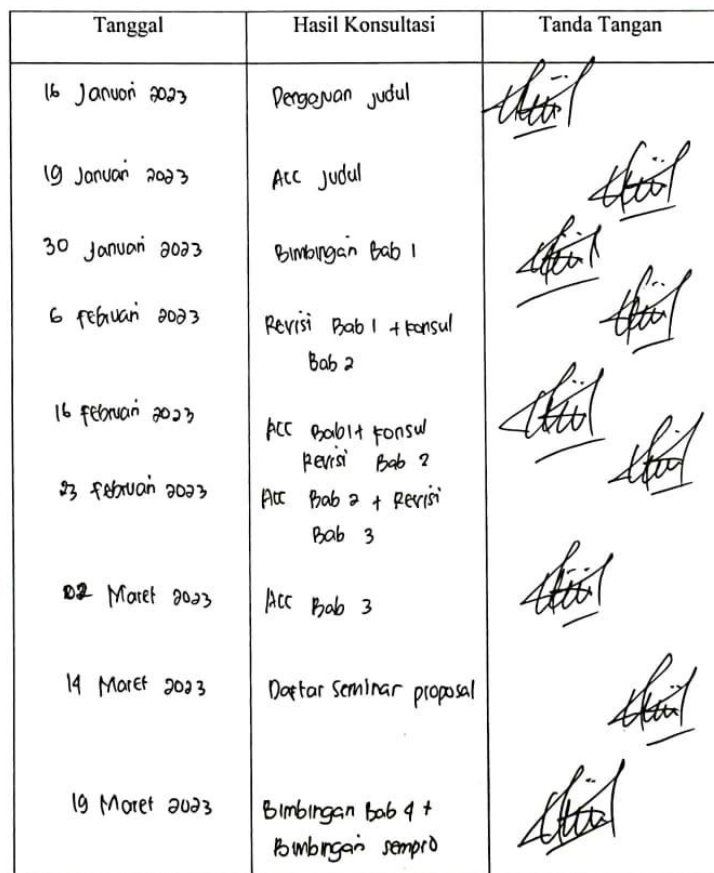 Tanggal Hasil Konsultasi Tanda Tangan
16 Januari 2023 Pengajuan judul
19 Januari 2023 Acc judul
30 Januari 2023 Bimbingan Bab 1
6 Februari 2023 Revisi Bab 1 + konsul
Bab 2
16 Februari 2023 Acc Bab 1 + konsul
Revisi Bab 2
23 Februari 2023 Acc Bab 2 + Revisi
Bab 3
02 Maret 2023 Acc Bab 3
14 Maret 2023 Daftar Seminar proposal
19 Maret 2023 Bimbingan Bab 4 +
Bimbingan sempro